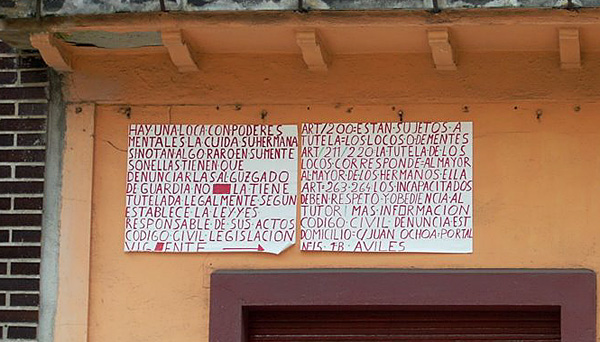 HAY UNA LOCA CON PODERES
MENTALES LA CUIDA SU HERMANA
SI NOTAN ALGO RARO EN SU MENTE
SON ELLAS TIENEN QUE
DENUNCIARLA S AL GUZGADO
DE GUARDIA NO LA TIENE
TUTELADA LEGALMENTE SEGUN
ESTABLECE LA LEY YES
RESPONSABLE DE SUS ACTOS
CODIGO CIVIL LEGISLACION
VIG ENTE
ART/200=ESTAN SUJETOS A
TUTELA=LOS LOCOS O DEMENTES
ART/211/220 LA TUTELA DE LOS
LOCOS CORRESPONDE=AL MAYOR
AL MAYOR DE LOS HERMANOS ELLA
ART=263-264 LOS INCAPACITADOS
DEBEN RESPETO Y OBEDIENCIA AL
TUTOR MAS INFORMACION
CODIGO CIVIL DENUNCIA EST
DOMICILIO=C/JUAN OCHOA PORTAL
Nº15 1ºB AVILES